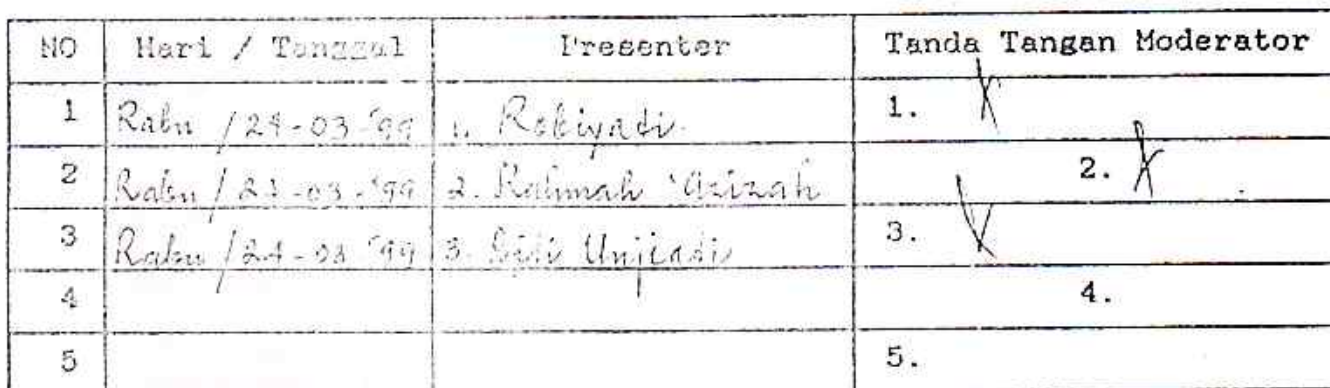 NO Hari / Tanggal Presenter Tanda Tangan Moderator
1 Rabu / 24-03-'99 1. Rokiyadi 1.
2 Rabu / 24-03-'99 2. Rahmah 'Azizah 2.
3 Rabu / 24-03-'99 3. 3.
4 4.
5 5.